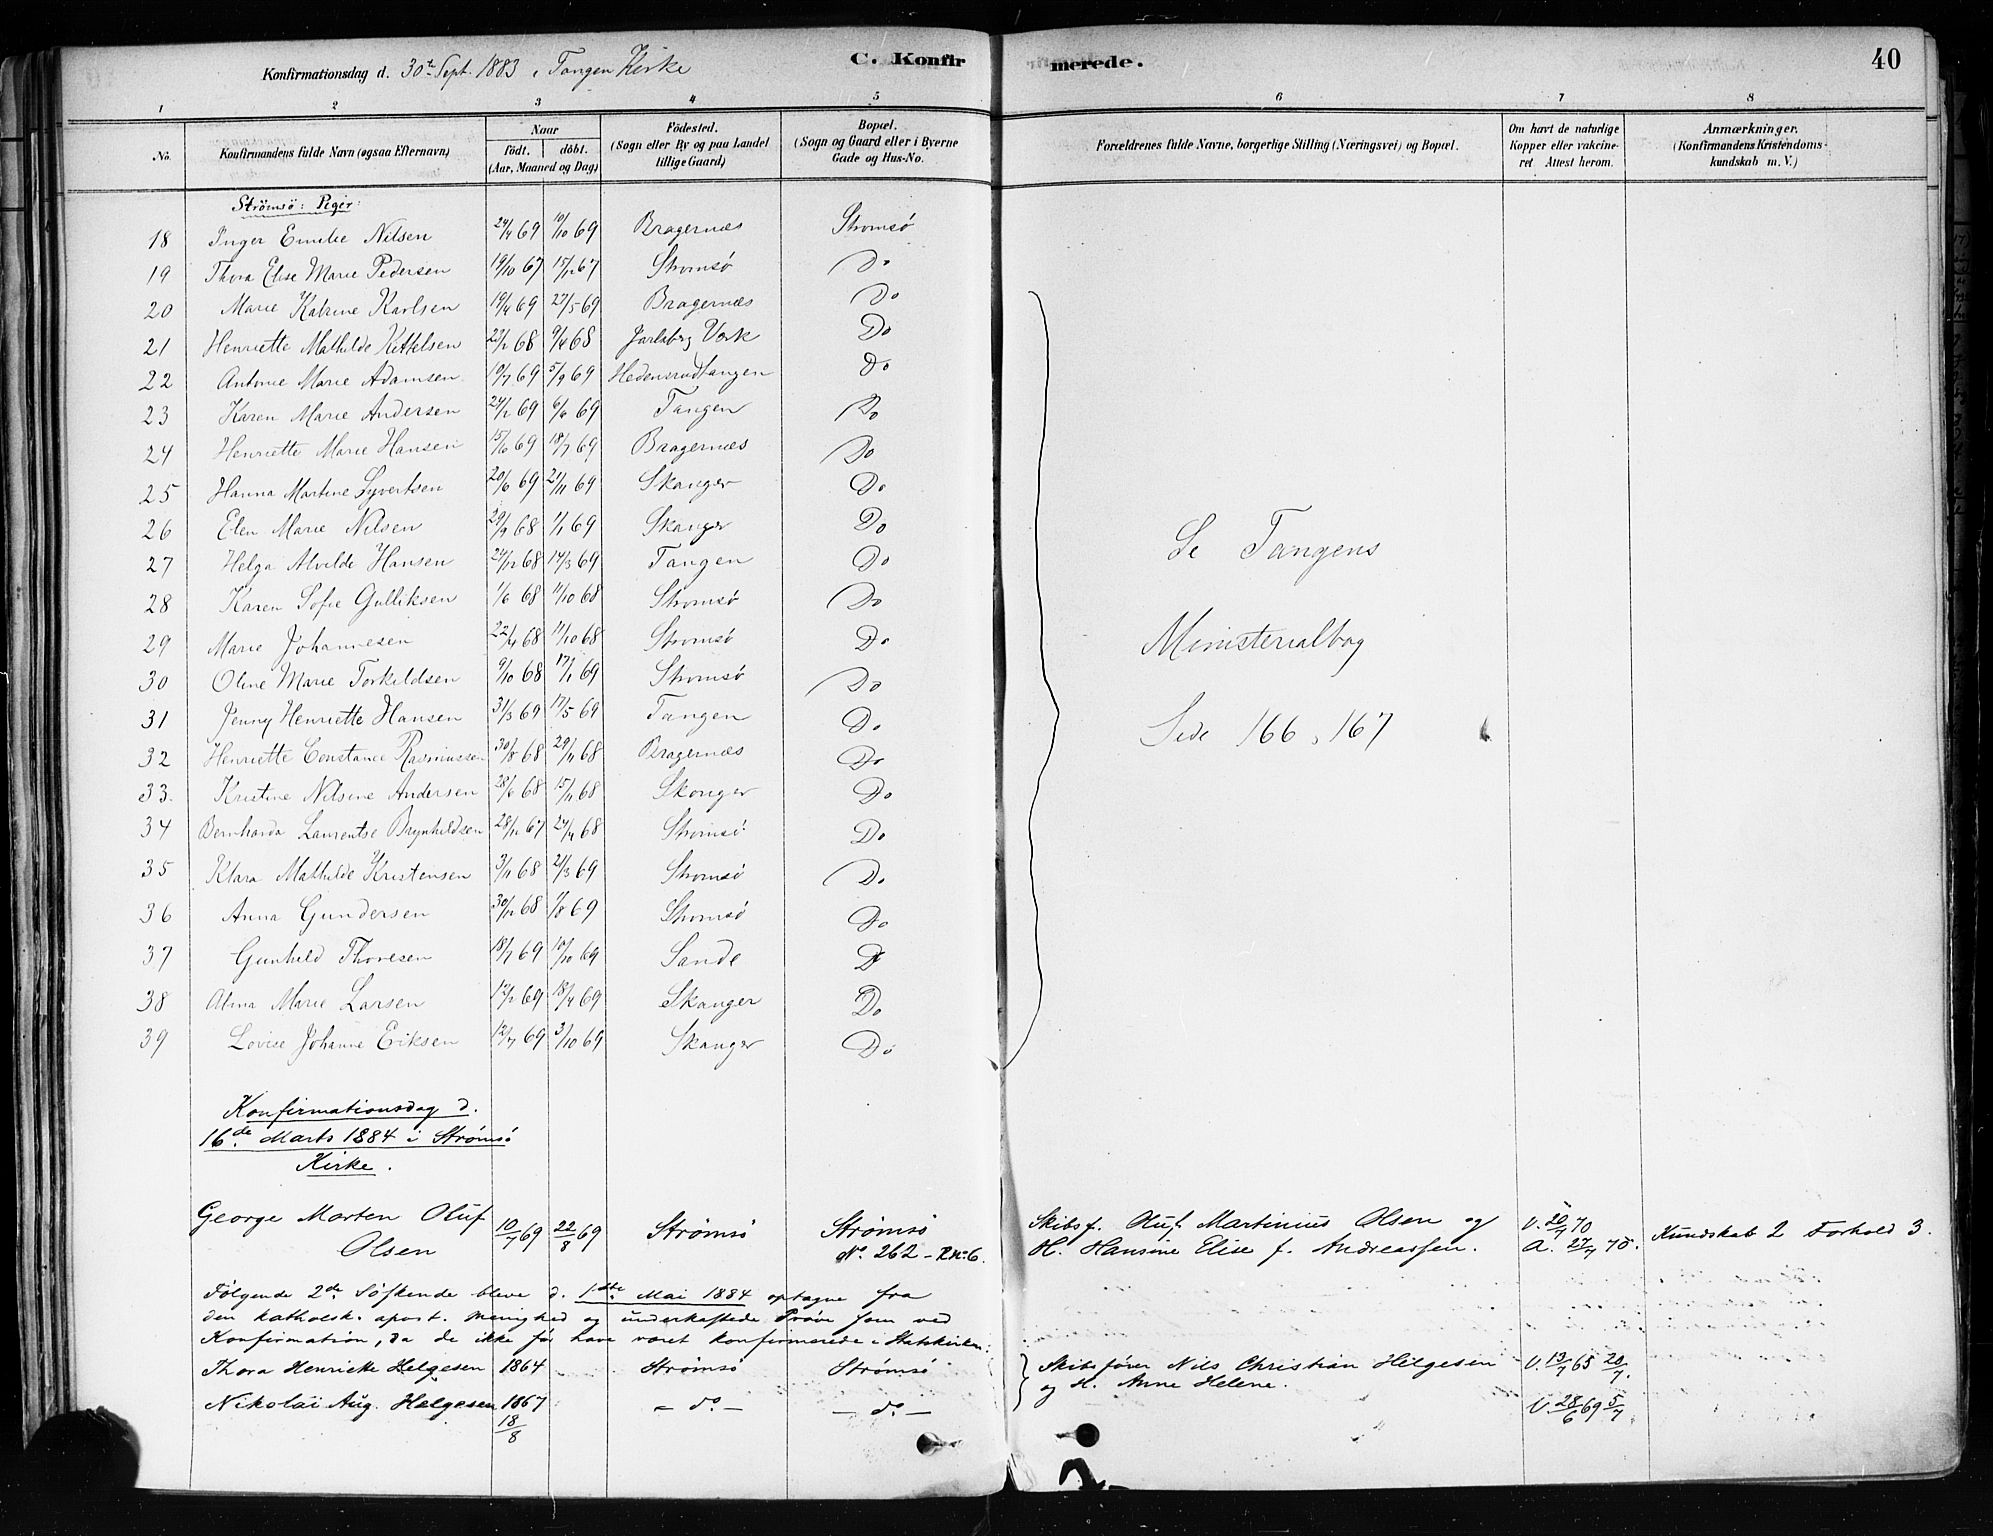 Konfirmationsdag d. 30te Sept. 1883 i Tangen Kirke C. Konfir merede. 40
1 2 3 4 5 6 7 8
No. Konfirmandens fulde Navn (ogsaa Efternavn) Naar födt. döbt. (Aar, Maaned og Dag) Födested. (Sogn eller By og paa Landet tillige Gaard) Bopæl. (Sogn og Gaard eller i Byerne Gade og Hus-No. Forældrenes fulde Navne, borgerlige Stilling (Næringsvei) og Bopæl. Om havt de naturlige Kopper eller vakcineret. Attest herom. Anmærkninger. (Konfirmandens Kristendomskundskab m. V.)
Strömsö: Piger:
18 Inger Emilie Nilsen 24/4 69 10/10 69 Bragernæs Stromsö
19 Thora Elise Marie Pedersen 19/10 67 15/12 67 Stromsö Do
20 Marie Katrine Karlsen 19/4 69 27/5 69 Bragernæs Do
21 Henriette Mathilde Kittelsen 68 9/4 68 Jarlsberg Værk Do
22 Antonie Marie Adamsen 19/7 69 5/9 69 Hedensrudtangen Do
23 Karen Marie Andersen 69 6/6 69 Tangen Do
24 Henriette Marie Hansen 15/6 69 18/7 69 Bragernæs Do
25 Hanna Martine Syvertsen 20/6 69 21/11 69 Skanger Do
26 Elen Marie Nilsen 29/9 68 1/1 69 Skanger Do
27 Helga Alvilde Hansen 24/12 68 14/3 69 Tangen Do
28 Karen Sofie Gulliksen 1/6 68 11/10 68 Stromsö Do
29 Marie Johannesen 22/4 68 11/10 68 Stromsö Do
30 Oline Marie Torkildsen 9/10 68 17/1 69 Stromsö Do
31 Jenny Henriette Hansen 31/3 69 17/5 69 Tangen Do
32 Henriette Constance Rasmussen 30/8 68 29/11 68 Bragernæs Do
33. Kristine Nilsine Andersen 28/6 68 15/11 68 Skonger Do
34 Bernharda Laurentse Brynhildsen 67 24/4 68 Stromsö Do
35 Klara Mathilde Kristensen 3/11 68 21/3 69 Stromsö Do
36 Anna Gundersen 30/12 68 1/8 69 Stromsö Do
37 Gunhild Thoresen 18/7 69 10/10 69 Sande D
38 Alma Marie Larsen 69 18/4 69 Skanger Do
39 Lovise Johanne Eriksen 12/7 69 3/10 69 Skanger Do
Se Tangens
Ministerialbog
Side 166, 167
Konfirmationsdag d.
16de Marts 1884 i Strömsö
Kirke.
George Marten Oluf 10/7 69 22/8 69 Strömsö Strömsö Skibsf. Oluf Martinius Olsen og V. 20/7 70 Kundskab 2 Forhold 3.
Olsen No. 262 - R.No 6. H. Hansine Elise f. Andreassen. A. 27/7 70.
Følgende 2de Söskende bleve d. 1ste Mai 1884 optagne fra
den katholsk. apost. Menighed og underkastede Pröve som ved
Konfirmation, da de ikke för have været konfirmerede i Statskirken:
Thora Henrieke Helgesen 1864 Strömsö Strömsö Skibsförer Nils Christian Helgesen V. 13/7 65 20/7.
og H. Anne Helene.
Nikolai Aug. Helgesen 1867 18/8 - do - - do - V. 28/6 69 5/7